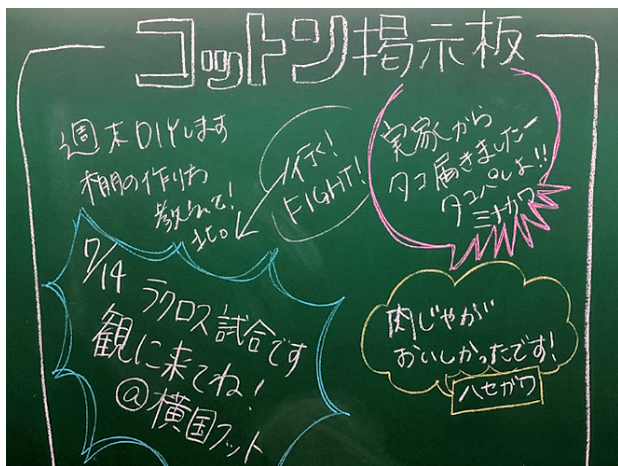 コットン掲示板
週末DIYします
棚の作りかた
教えて!
北。
行く!
FIGHT!
実家から
タコ届きましたー
タコパしよ!!
ミナガワ
7/14 ラクロス試合です
観に来てね!
@横国フット
肉じゃがが
おいしかったです!
ハセガワ